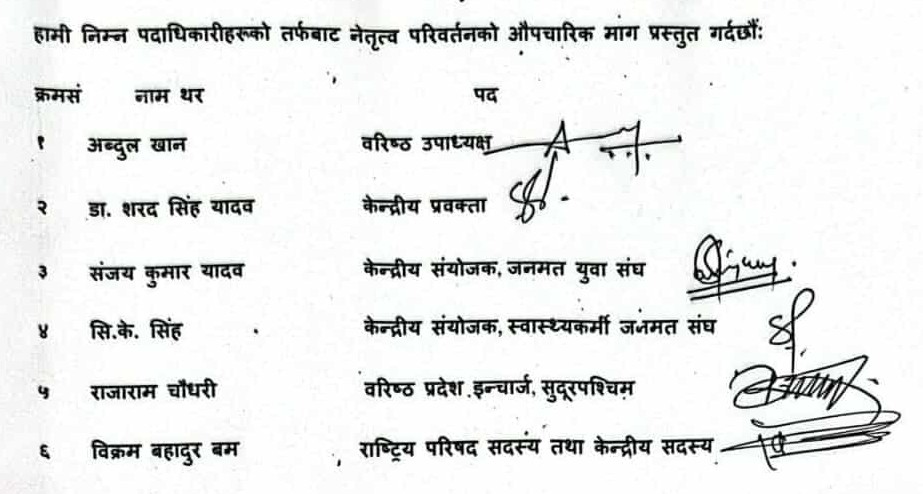 हामी निम्न पदाधिकारीहरूको तर्फबाट नेतृत्व परिवर्तनको औपचारिक मांग प्रस्तुत गर्दछौं:
क्रमसं नाम थर पद
१ अब्दुल खान वरिष्ठ उपाध्यक्ष
२ डा. शरद सिंह यादव केन्द्रीय प्रवक्ता
३ संजय कुमार यादव केन्द्रीय संयोजक, जनमत युवा संघ
४ सि.के. सिंह केन्द्रीय संयोजक, स्वास्थ्यकर्मी जनमत संघ
५ राजाराम चौधरी वरिष्ठ प्रदेश इन्चार्ज, सुदूरपश्चिम
६ विक्रम बहादुर बम राष्ट्रिय परिषद सदस्य तथा केन्द्रीय सदस्य